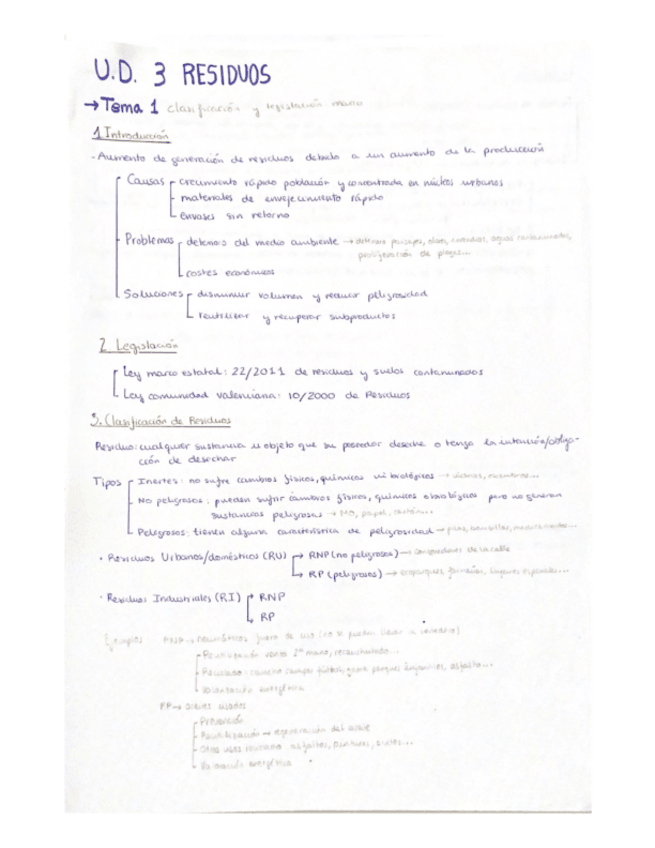 U.D. 3 RESIDUOS
→ Tema 1 clasificación y legislación marco
1 Introducción
· Aumento de generación de residuos debido a un aumento de la producción
Causas crecimiento rápido población y concentrada en núcleos urbanos
materiales de envejecimiento rápido
envases sin retorno
Problemas deterioro del medio ambiente → deterioro paisajes, olores, aguas contaminadas,
proliferación de plagas...
costes económicos
Soluciones disminuir volumen y reducir peligrosidad
reutilizar y recuperar subproductos
2. Legislación
Ley marco estatal: 22/2011 de residuos y suelos contaminados
Ley comunidad valenciana: 10/2000 de Residuos
3. Clasificación de Residuos
Residuo: cualquier sustancia u objeto que su poseedor deseche o tenga la intención/obliga-
ción de desechar
Tipos Inertes: no sufre cambios físicos, químicos ni biológicos →
No peligrosos: pueden sufrir cambios físicos, químicos o biológicos pero no generan
sustancias peligrosas → papel, cartón...
Peligrosos: tienen alguna característica de peligrosidad → pilas, bombillas, medicamentos...
· Residuos Urbanos/domésticos (RU) → RNP (no peligrosos) → contenedores de la calle
→ RP (peligrosos) → ecoparques, farmacias, lugares especiales...
· Residuos Industriales (RI) → RNP
→ RP
Ejemplos → neumáticos fuera de uso (no se pueden llevar a vertedero)
Reutilización venta 2ª mano, recauchutado...
Reciclado: caucho campos fútbol, parques, asfalto...
valorización energética
RP → aceites usados
Prevención
Reutilización → regeneración del aceite
Otros usos reciclado asfaltos, pinturas, ...
energética